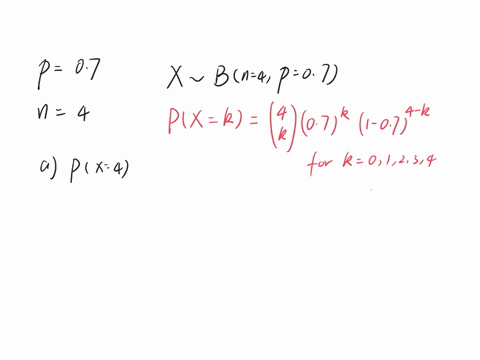 p = 0.7
n = 4
a) P(X=4)
X ~ B(n=4, p=0.7)
P(X=k) = (4 k) (0.7)^k (1-0.7)^4-k
for k=0,1,2,3,4